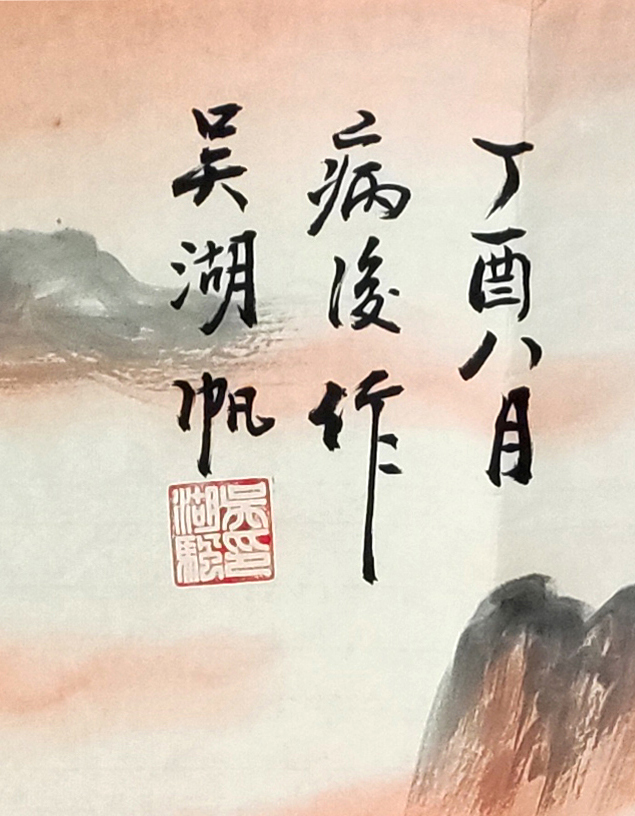 丁酉八月
病後作
吳湖帆
吳湖颿印